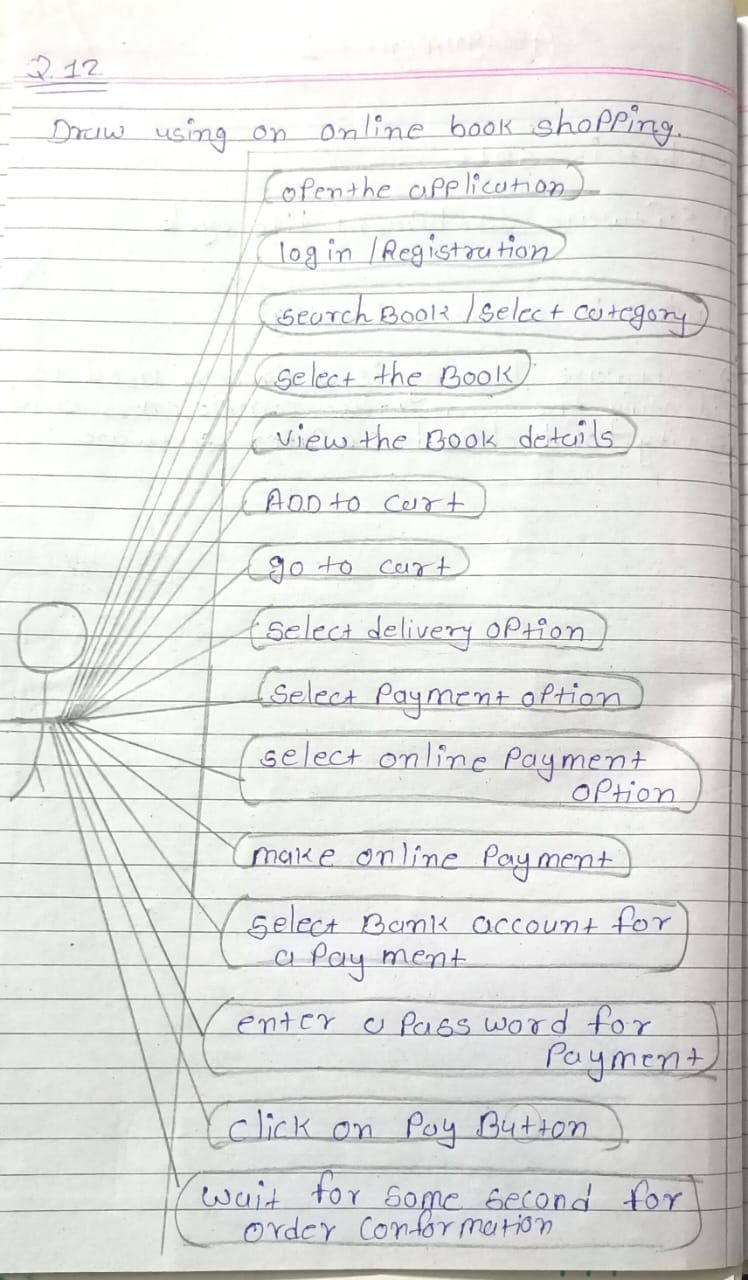 Q.12
Draw using on online book shopping.
open the application
log in / Registration
search Book / select category
select the Book
view the Book details
ADD to cart
go to cart
select delivery option
select Payment option
select online Payment
option
make online Payment
select Bank account for
a Payment
enter a Password for
Payment
click on Pay Button
wait for some second for
order Conformation